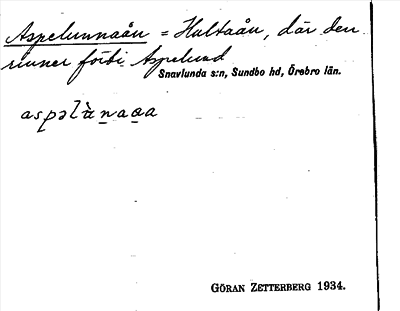 Aspelunnaån = Hultaån, där den
rinner förbi Aspelund
Snavlunda s:n, Sundbo hd, Örebro län.
aspəlùnaaa
GÖRAN ZETTERBERG 1934.